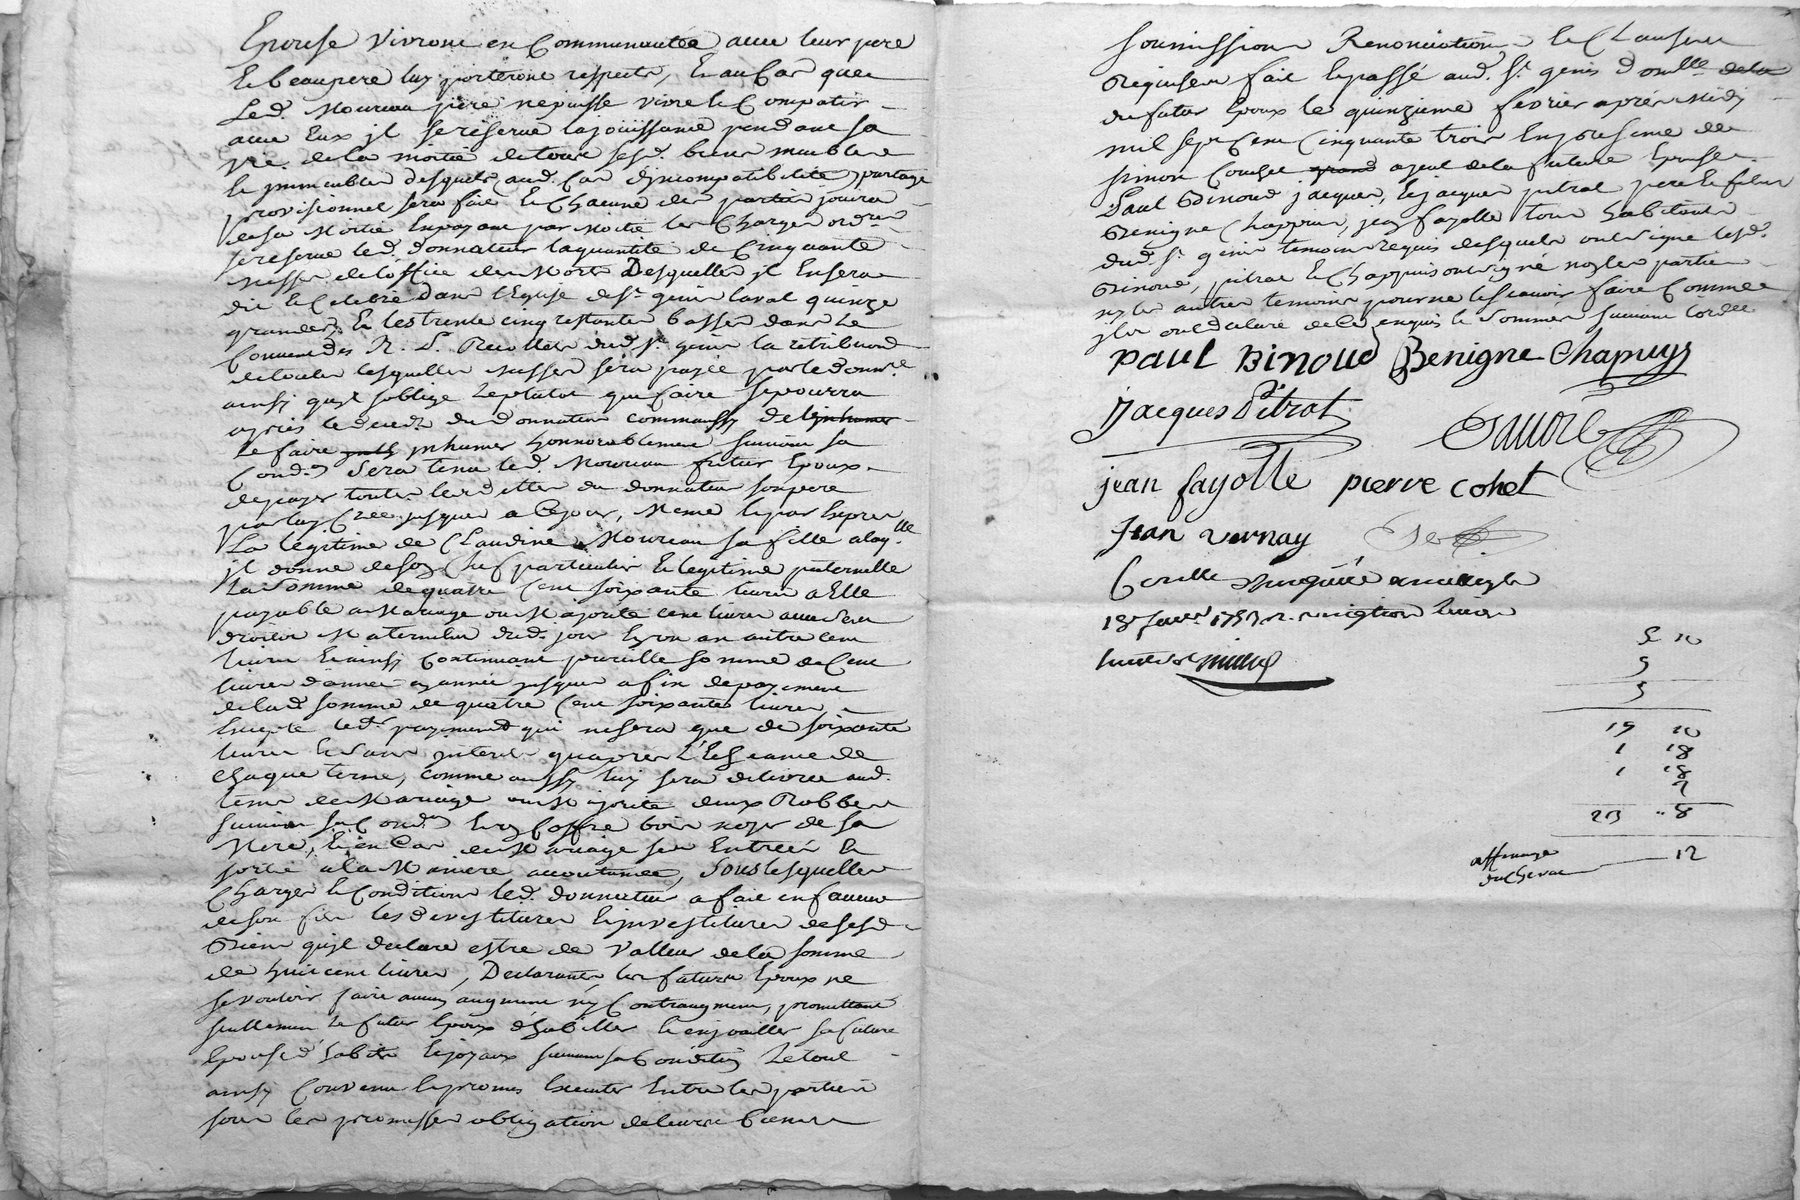 Epouse vivront en Communautée avec leur pere
Et beaupere luy porteront respects, Et au Cas que
Led. Moureau pere ne puisse vivre Et Compatir
avec Eux jl se réserve la joüissance pendant sa
vie de la moitié de tous sesd. biens meubles
Et jmmeubles desquels aud. Cas djncompatibilité partage
provisionnel sera fait Et Chacune des parties joüira
de sa Moitié En payant par Moitié les Charges ord.res
se réserve led. donnateur la quantité de Cinquante
Messes de l'office des Morts Desquelles jl En sera
dit Et Celebré Dans l'Eglise de St. genis laval quinze
grandes, Et les trente cinq restantes basses dans Le
Couvent des R. P. Recollets dud. St. genis la retribution
de toutes lesquelles Messes sera payée par le donn.re
ainsy qu'jl s'oblige Le plutot que faire se pourra
après le deceds du donnateur comm'aussy de
Le faire jnhumer honnorablement suivant sa
Cond.on Sera tenu led. Moureau futur Epoux
de payer toutes les dettes du donnateur son pere
par luy Créé jusques a Cejour, Meme Et par Exprès
La légitime de Claudine Moureau sa fille a laq.lle
jl donne de son Chef particulier Et legitime paternelle
La Somme de quatre Cent soixante livres a Elle
payable a Mariage ou Majorité cent livres avec ses
droits Maternels dud. jour En un an autre cent
livres Et ainsy Continuant pareille somme de Cent
livres d'année en année jusques a fin de payement
de lad. somme de quatre Cent soixantes livres
Excepté le d.er payement qui ne sera que de soixante
livres Et sans jnterets qu'apres L'Echeance de
Chaque terme, Comme aussy luy sera delivrée aud.
tems de Mariage ou Majorité deux Robbes
suivant sa Cond.on Et un Coffre bois noyer de sa
Mere, Et en Cas de Mariage ses Entrées Et
sortie a la Maniere accoutumée, Sous lesquelles
Charges Et Conditions led. donnateur a fait en faveur
de son fils les devestitures Et jnvestitures de sesd.
Biens qu'jl declare estre de Valleur de la somme
de huit cent livres, Declarants les futurs Epoux ne
se vouloir faire aucun augment ny Contraugment, promettant
seullement Le futur Epoux d'habiller Et enjoailler sa future
Epouse d'habits Et joyaux suivant sa Condition Le tout
ainsy Convenu Et promis Executer Entre les parties
sous les promesses obligation de leurs biens
soumission Renonciation Et Clauses
Requises fait Et passé aud. St. genis Domlle
du futur Epoux le quinzieme fevrier après Midy
mil sept Cent Cinquante trois En presence de
simon Couchet ayeul de la future Epouse
Paul Binoud jacques, Et jacques pitrat pere Et fils
Benigne Chappuis, jean fayolle tous habitants
dud. St. genis temoins requis desquels ont signé lesd.
Binoud, pitrat Et Chappuis ont signé non les parties
ny les autres temoins pour ne le scavoir faire Comme
jls ont déclaré de ce enquis Et Sommés suivant l'ordce
Paul Binoud Benigne Chapuys
Jacques Pitrat
jean fayolle pierre cohet
Jean Vernay
18 fevrier 1753
5 10
5
5
19 10
1 18
1 18
2
23 ..8
12